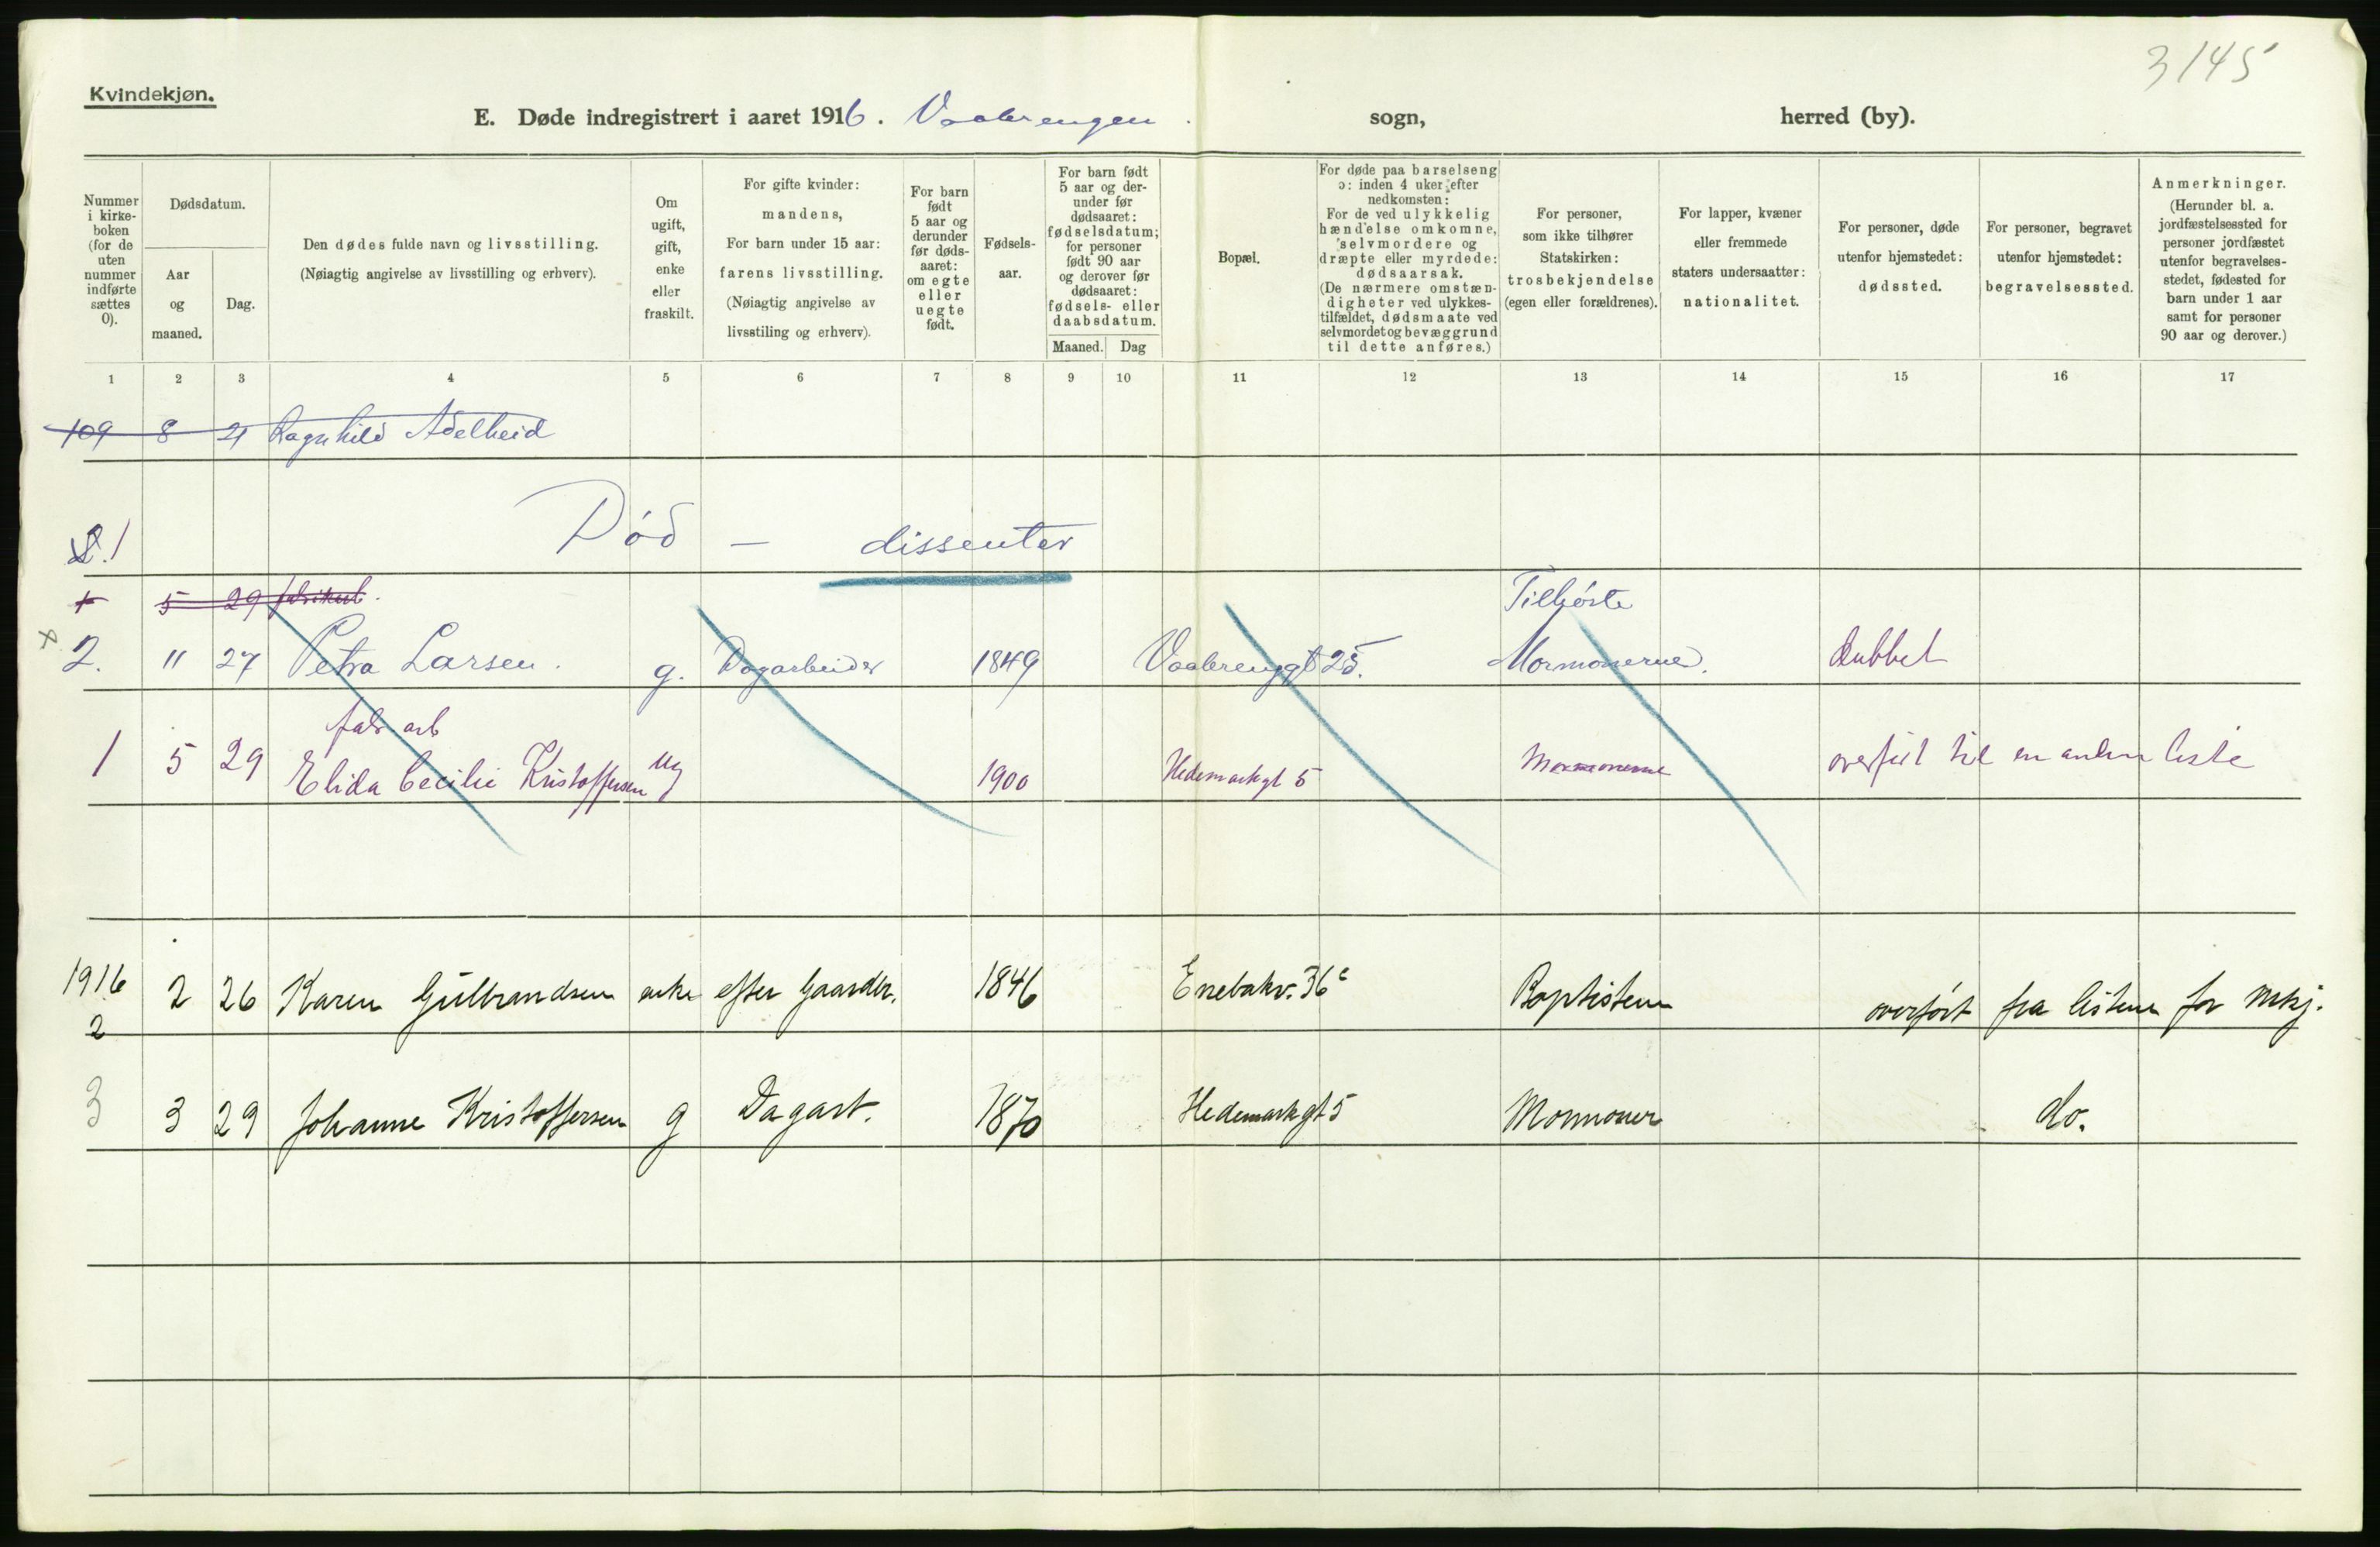 3145
Kvindekjøn.
E. Døde indregistrert i aaret 1916. Vaalerengen sogn, herred (by).
Nummer i kirke-boken (for de uten nummer indførte sættes 0).
Dødsdatum.
Aar og maaned.
Dag.
Den dødes fulde navn og livsstilling.
(Nøiagtig angivelse av livsstilling og erhverv).
Om ugift, gift, enke eller fraskilt.
For gifte kvinder:
mandens,
For barn under 15 aar:
farens livsstilling.
(Nøiagtig angivelse av
livsstiling og erhverv).
For barn født 5 aar og derunder før døds-aaret: om egte eller uegte født.
Fødsels-aar.
For barn født 5 aar og der-under før dødsaaret: fødselsdatum; for personer født 90 aar og derover før dødsaaret: fødsels- eller daabsdatum.
Maaned. Dag
Bopæl.
For døde paa barselseng
ɔ: inden 4 uker efter
nedkomsten:
For de ved ulykkelig
hændelse omkomne,
selvmordere og
dræpte eller myrdede:
dødsaarsak.
(De nærmere omstæn-
digheter ved ulykkes-
tilfældet, dødsmaate ved
selvmordet og bevæggrund
til dette anføres.)
For personer,
som ikke tilhører
Statskirken:
trosbekjendelse
(egen eller forældrenes).
For lapper, kvæner
eller fremmede
staters undersaatter:
nationalitet.
For personer, døde
utenfor hjemstedet:
dødssted.
For personer, begravet
utenfor hjemstedet:
begravelsessted.
Anmerkninger.
(Herunder bl. a.
jordfæstelsessted for
personer jordfæstet
utenfor begravelses-
stedet, fødested for
barn under 1 aar
samt for personer
90 aar og derover.)
1 2 3 4 5 6 7 8 9 10 11 12 13 14 15 16 17
109 8 21 Ragnhild Adelheid
Död - dissenter
1 5 29 fabrikarb.
Tilhörte
2. 11 27 Petra Larsen. g. Dagarbeider 1849 Vaalerenggt 25. Mormonerne. dubbel
fabr arb
1 5 29 Elida Cecilie Kristoffersen ug 1900 Hedemarkgt 5 Mormonerne overført til en anden liste
1916
2 2 26 Karen Gulbrandsen enke efter Gaardbr. 1846 Enebakv. 36c Baptistern overført fra listen for mkj.
3 3 29 Johanne Kristoffersen g Dagarb. 1870 Hedemarkgt 5 Mormoner do.